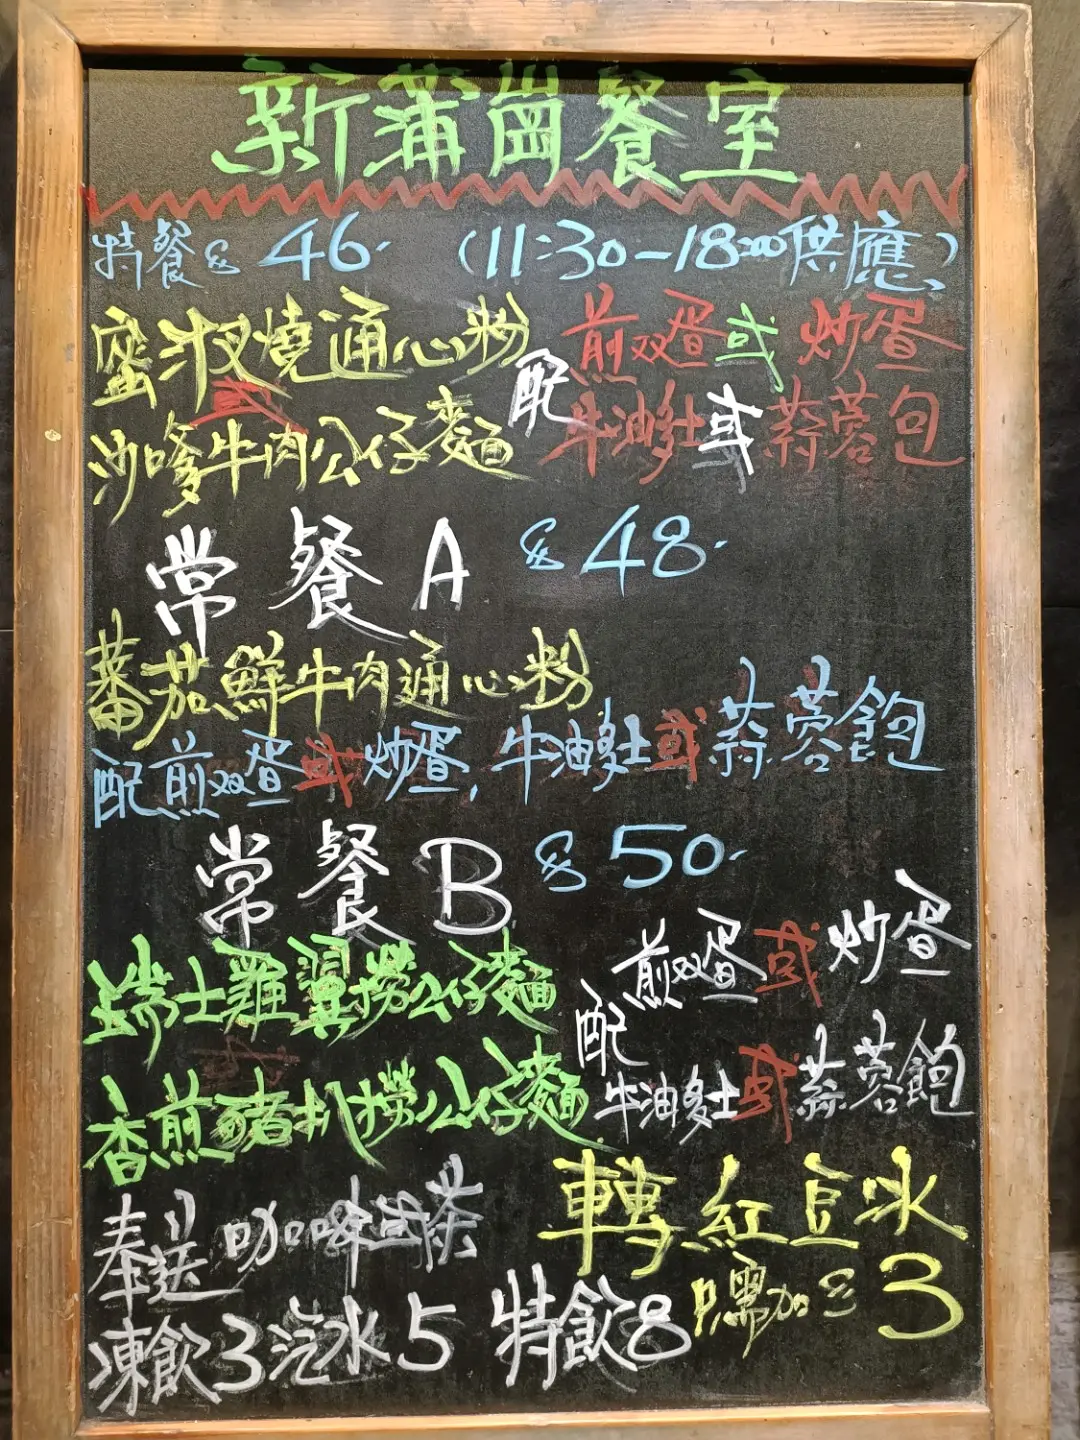 新蒲崗餐室
特餐$46. (11:30-18:00供應)
蜜汁叉燒通心粉
或
沙嗲牛肉公仔麵
配
煎双蛋或炒蛋
牛油多士或蒜蓉包
常餐A $48.
蕃茄鮮牛肉通心粉
配煎双蛋或炒蛋,牛油多士或蒜蓉飽
常餐B $50.
瑞士雞翼撈公仔麵
香煎豬扒撈公仔麵
配
煎双蛋或炒蛋
牛油多士或蒜蓉飽
奉送咖啡或茶
凍飲3汽水5 特飲8
轉紅豆冰
只需加$3